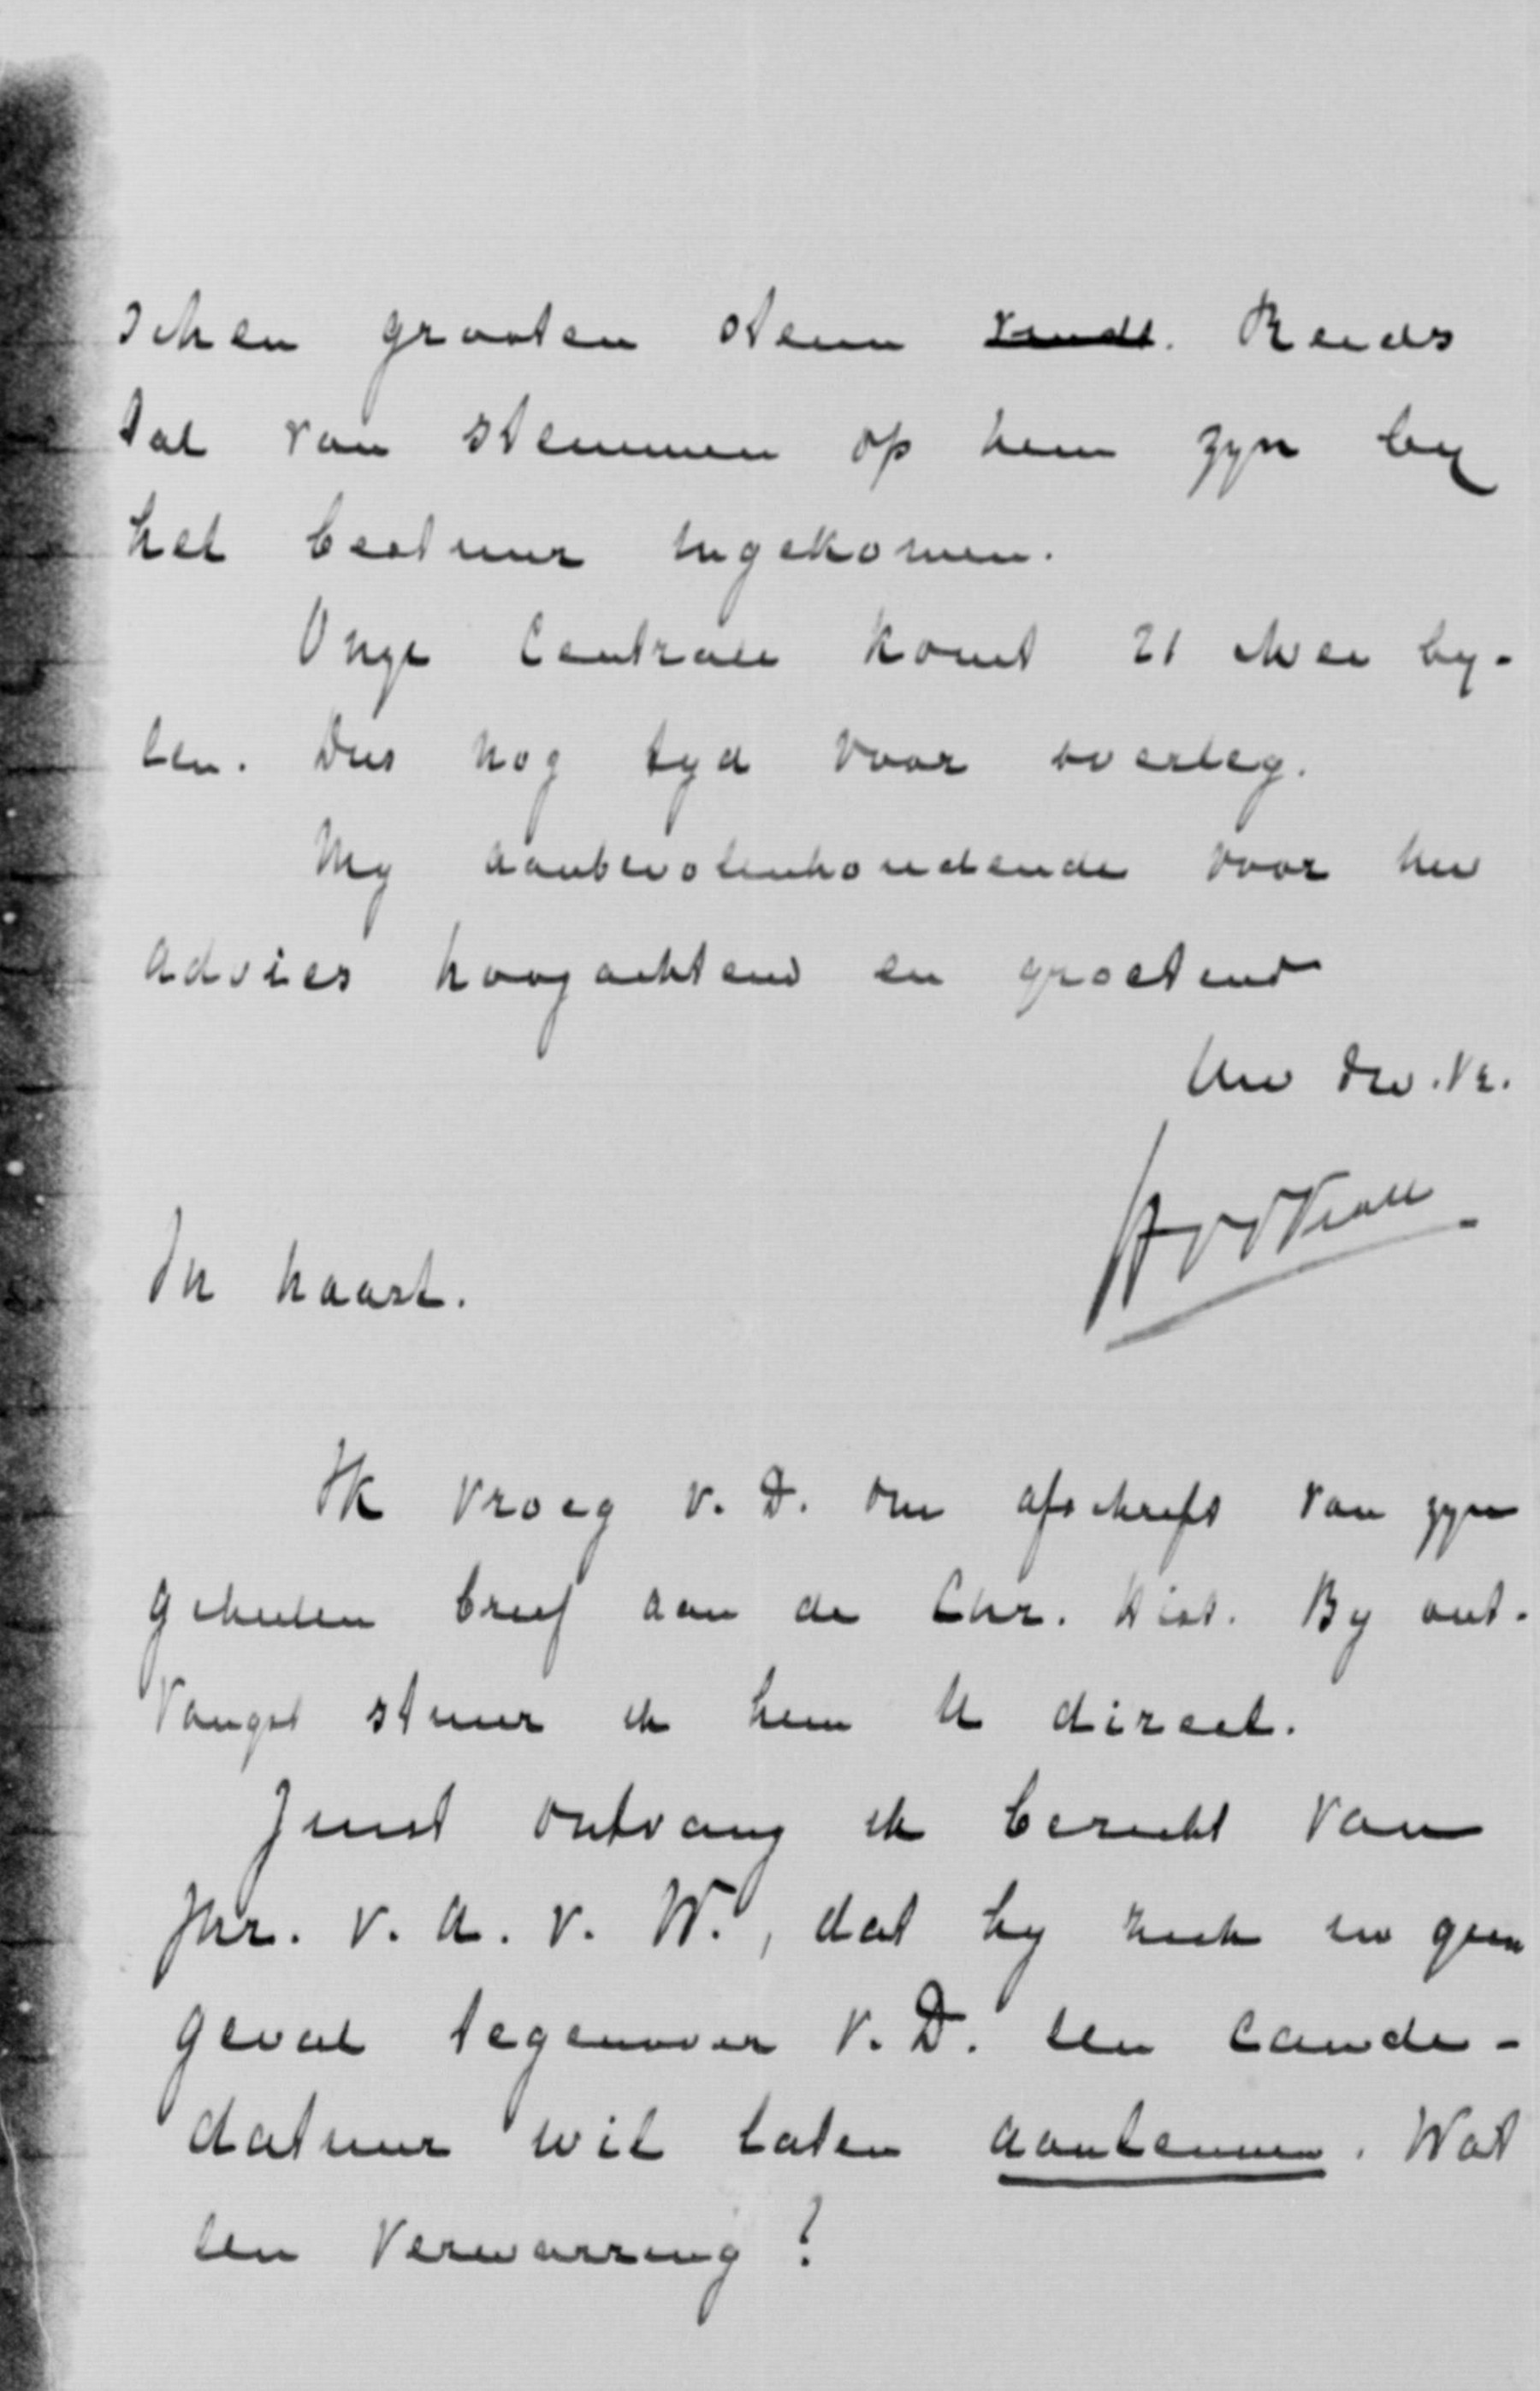 schen grooten steun vindt. Reeds
tal van stemmen op hem zyn by
het bestuur ingekomen.
Onze Centrale komt 21 Mei by-
een. Dus nog tyd voor overleg.
My aanbevolenhoudende voor uw
advies hoogachtend en groetend
Uw dw. Vr.
In haast.
Ik vroeg v. D. om afschrift van zyn
geheelen brief aan de Chr. Hist. By ont-
vangst stuur ik hem U direct.
Juist ontvang ik bericht van
Jhr. v. A. v. W., dat hy zich in geen
geval tegenover v. D. een candi-
datuur wil laten aanleunen. Wat
een verwarring!